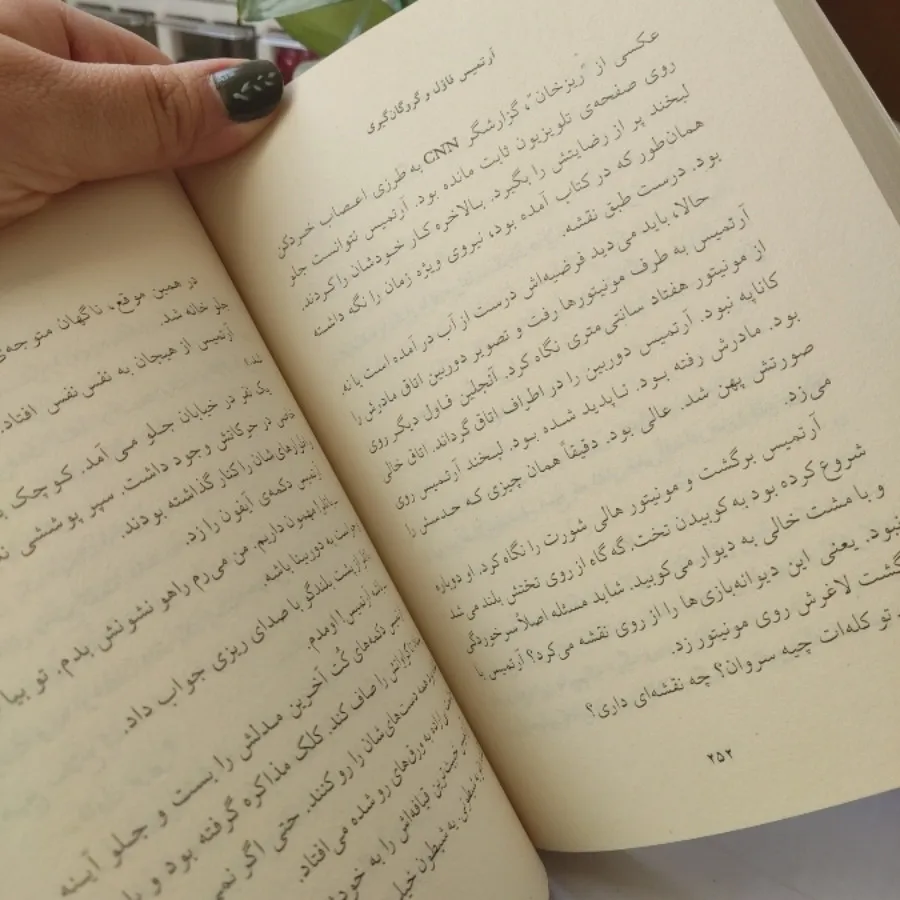 آرتمیس فاول و گروگان‌گیری
عکسی از "ریزخان"، گزارشگر CNN به طرزی اعصاب خردکن
روی صفحه‌ی تلویزیون ثابت مانده بود. آرتمیس نتوانست جلو
لبخند پر از رضایتش را بگیرد. بالاخره کار خودشان را کردند.
همان‌طور که در کتاب آمده بود، نیروی ویژه زمان را نگه داشته
بود. درست طبق نقشه.
حالا، باید می‌دید فرضیه‌اش درست از آب در آمده است یا نه.
آرتمیس به طرف مونیتورها رفت و تصویر دوربین اتاق مادرش را
از مونیتور هفتاد سانتی‌متری نگاه کرد. آنجلین فاول دیگر روی
کاناپه نبود. آرتمیس دوربین را در اطراف اتاق گرداند. اتاق خالی
بود. مادرش رفته بود. ناپدید شده بود. لبخند آرتمیس روی
صورتش پهن شد. عالی بود. دقیقاً همان چیزی که حدسش را
می‌زد.
آرتمیس برگشت و مونیتور هالی شورت را نگاه کرد. او دوباره
شروع کرده بود به کوبیدن تخت. گه گاه از روی تختش بلند می‌شد
و با مشت خالی به دیوار می‌کوبید. شاید مسئله اصلاً سرخوردگی
نبود. یعنی این دیوانه‌بازی‌ها را از روی نقشه می‌کرد؟ آرتمیس با
گشت لاغرش روی مونیتور زد.
تو کله‌ات چیه سروان؟ چه نقشه‌ای داری؟
۲۵۲
در همین موقع، ناگهان متوجه‌ی
جلو خانه شد.
آرتمیس از هیجان به نفس‌نفس افتاد.
یک نفر در خیابان جلو می‌آمد. کوچک
خاصی در حرکاتش وجود داشت. سپر پوششی
را کنار گذاشته بودند.
آرتمیس دکمه‌ی آیفون را زد.
مهمون داریم. من می‌رم راهو نشونش بدم. تو بیا
به دوربینا باشه.
از پشت بلندگو با صدای ریزی جواب داد.
آرتمیس! اومدم.
دکمه‌های کُت آخرین مدلش را بست و جلو آینه
را صاف کند. کلک مذاکره گرفته بود و
دست‌های‌شان را رو کنند. حتی اگر
به ورق‌های رو شده می‌افتاد.
قیافه‌اش را به